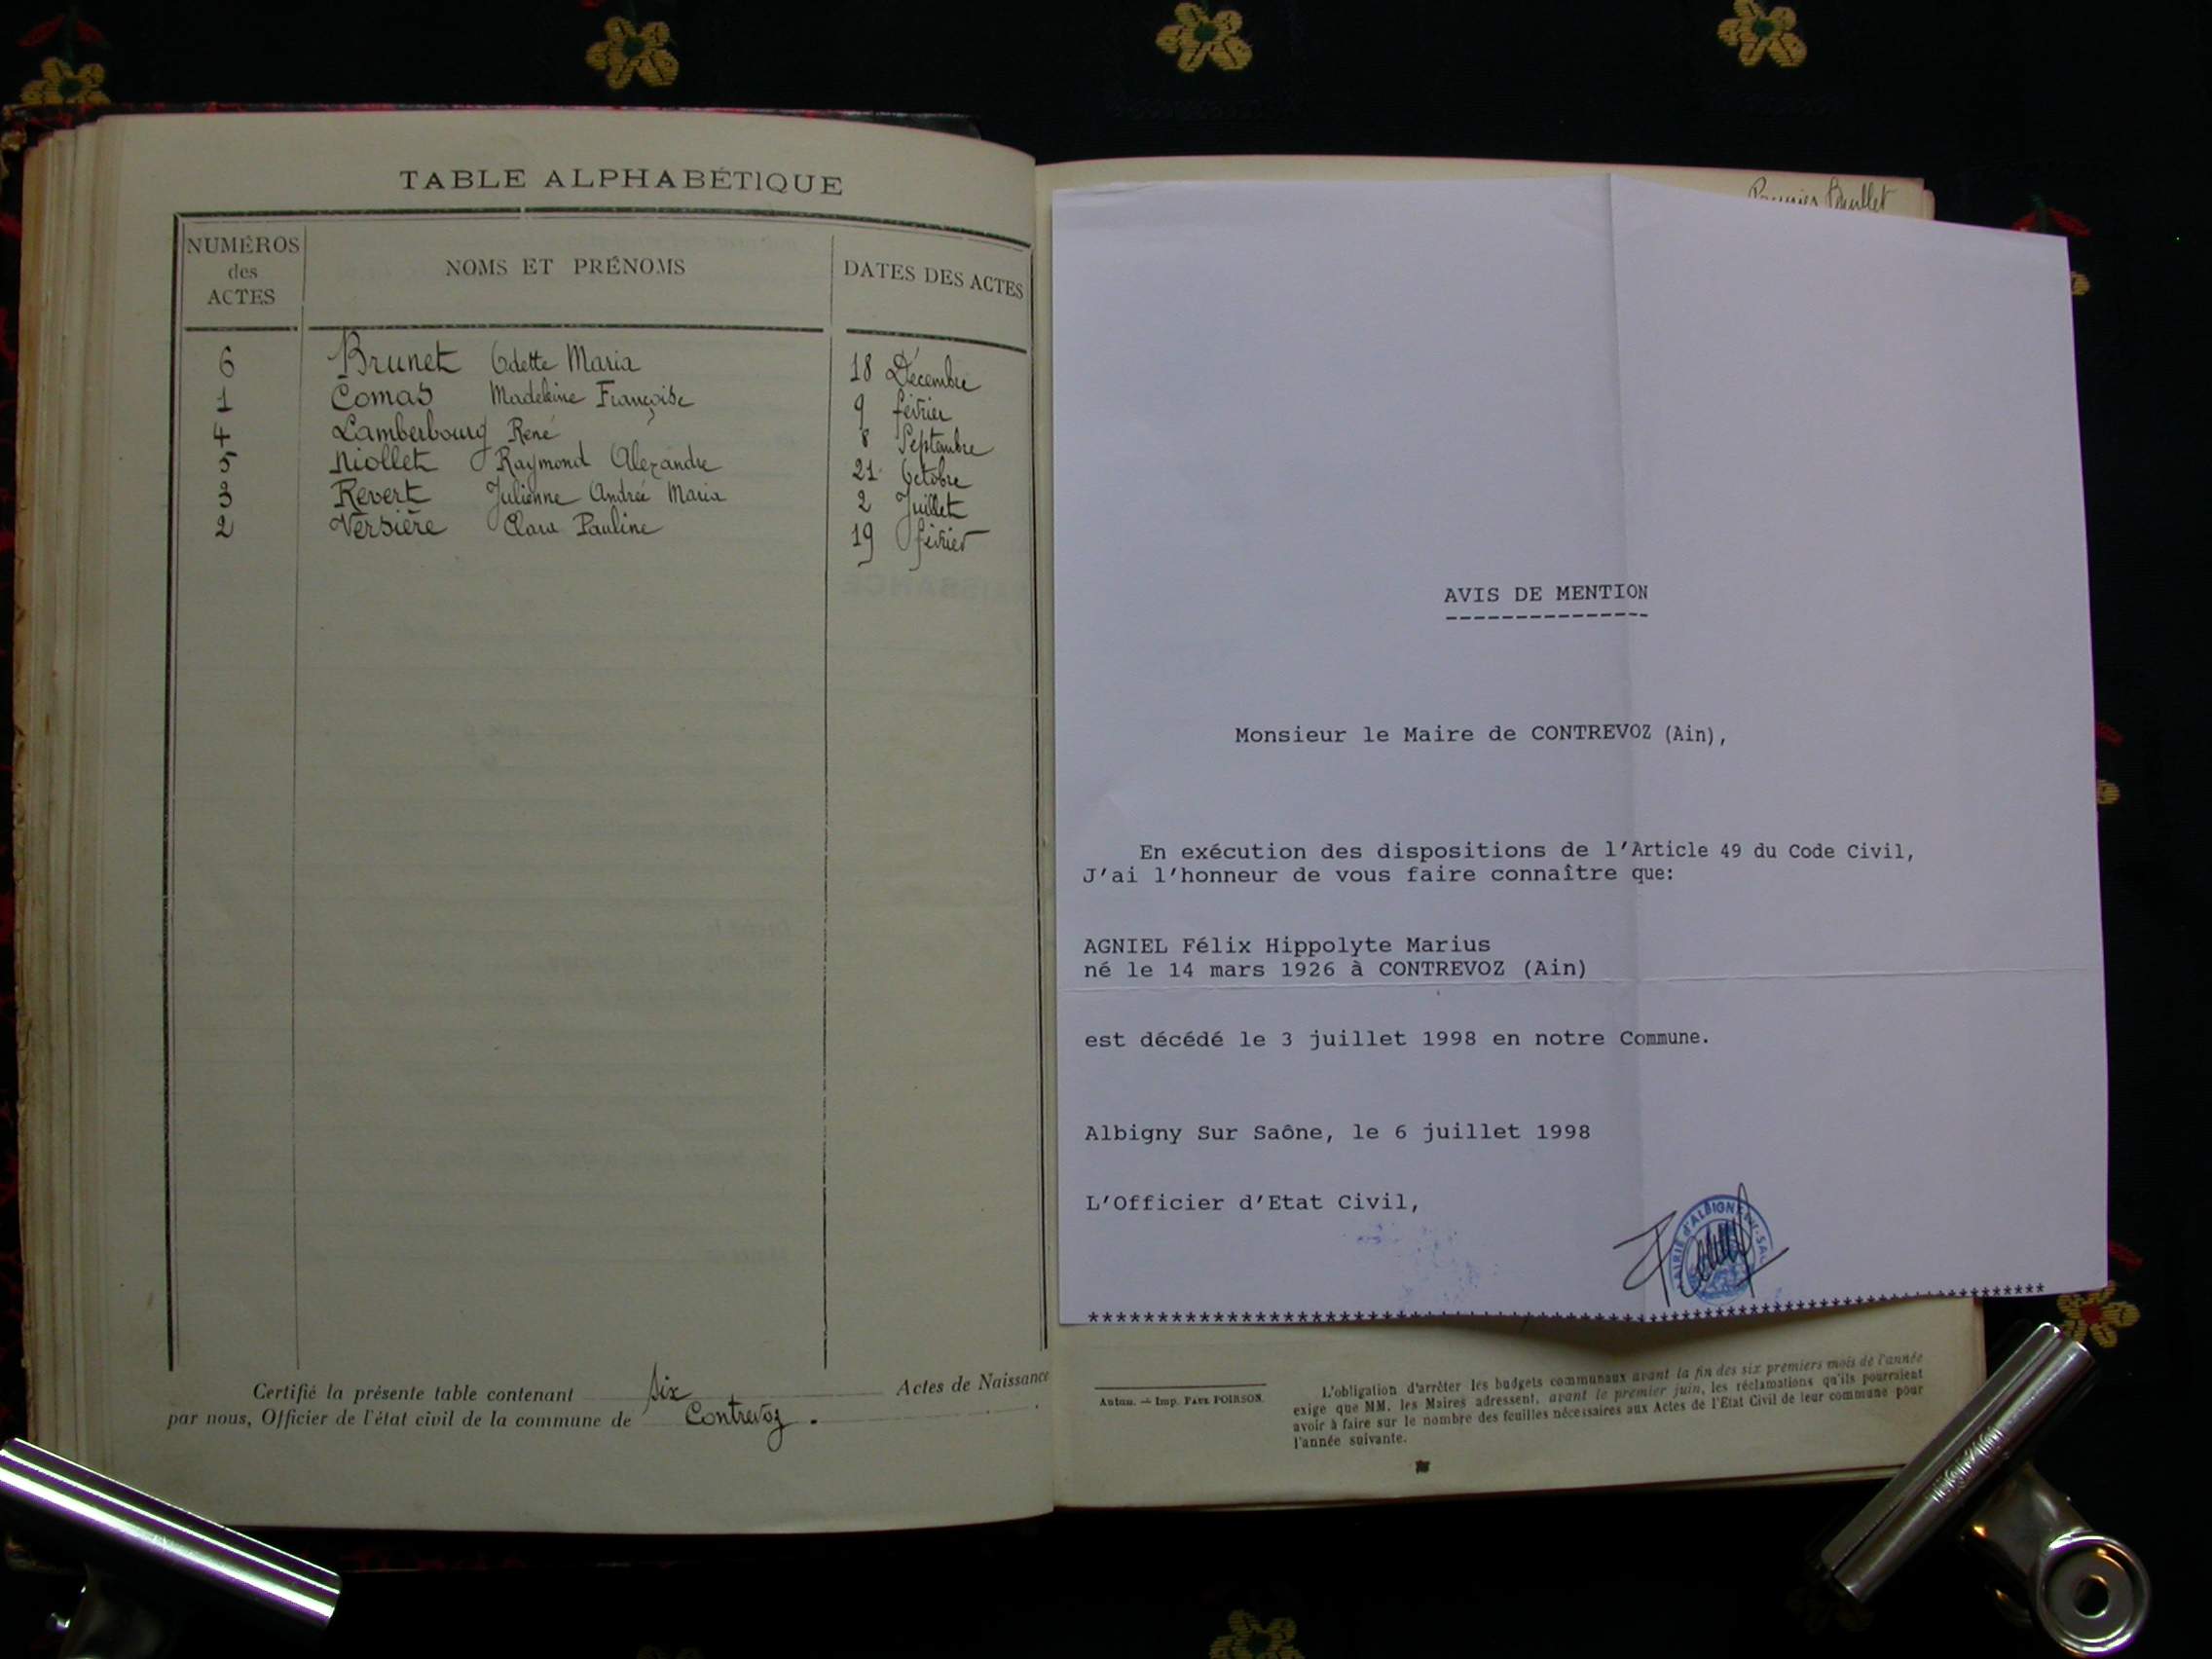 TABLE ALPHABÉTIQUE
NUMÉROS des ACTES NOMS ET PRÉNOMS DATES DES ACTES
6 Brunet Odette Maria 18 Décembre
1 Comas Madeleine Françoise 9 février
4 Lamberbourg René 8 Septembre
5 Niollet Raymond Alexandre 21 Octobre
3 Revert Julienne Andrée Maria 2 Juillet
2 Versière Clara Pauline 19 février
Certifié la présente table contenant six Actes de Naissance
par nous, Officier de l'état civil de la commune de Contrevoz.
Premier
AVIS DE MENTION
--------------
Monsieur le Maire de CONTREVOZ (Ain),
En exécution des dispositions de l'Article 49 du Code Civil,
J'ai l'honneur de vous faire connaître que:
AGNIEL Félix Hippolyte Marius
né le 14 mars 1926 à CONTREVOZ (Ain)
est décédé le 3 juillet 1998 en notre Commune.
Albigny Sur Saône, le 6 juillet 1998
L'Officier d'Etat Civil,
Autun. — Imp. Paul POIRSON.
L'obligation d'arrêter les budgets communaux avant la fin des six premiers mois de l'année
exige que MM. les Maires adressent, avant le premier juin, les réclamations qu'ils pourraient
avoir à faire sur le nombre des feuilles nécessaires aux Actes de l'Etat Civil de leur commune pour
l'année suivante.